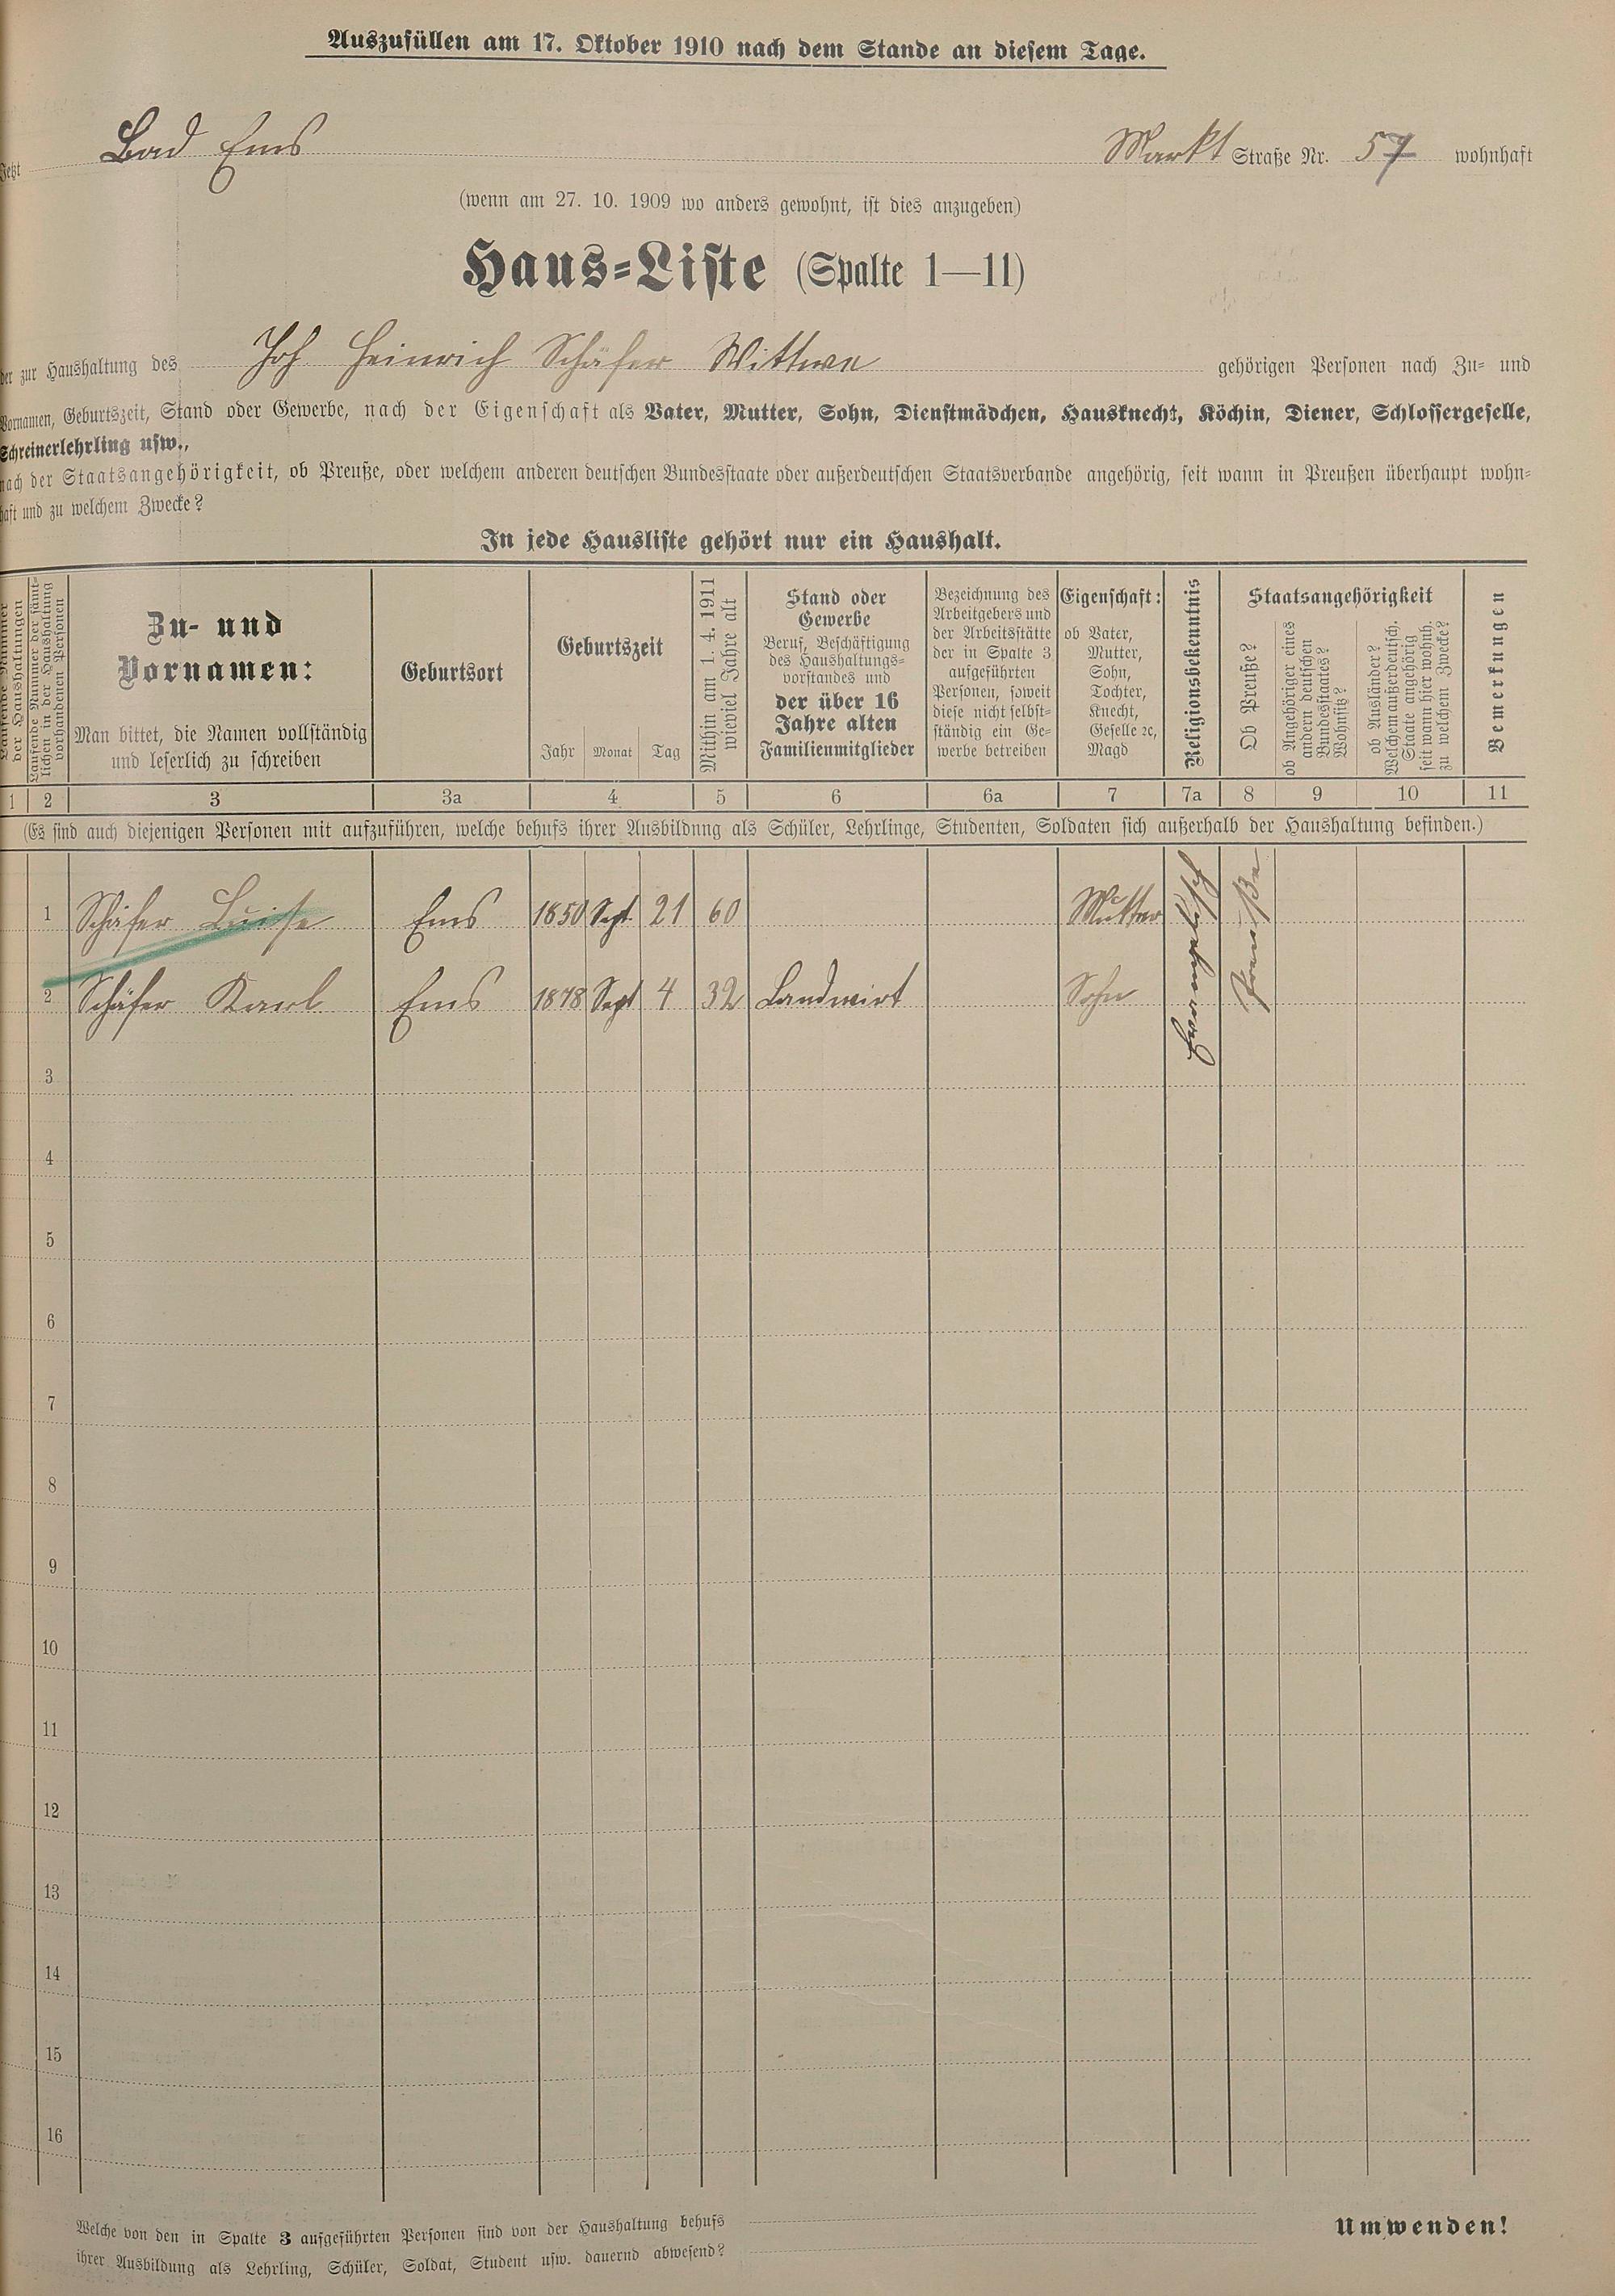 Auszufüllen am 17. Oktober 1910 nach dem Stande an diesem Tage.
Jetzt Bad Ems Markt Straße Nr. 57 wohnhaft
(wenn am 27. 10. 1909 wo anders gewohnt, ist dies anzugeben)
Haus-Liste (Spalte 1—11)
der zur Haushaltung des Joh Heinrich Schäfer Wittwe gehörigen Personen nach Zu- und
Vornamen, Geburtszeit, Stand oder Gewerbe, nach der Eigenschaft als Vater, Mutter, Sohn, Dienstmädchen, Hausknecht, Köchin, Diener, Schlossergeselle,
Schreinerlehrling usw.,
nach der Staatsangehörigkeit, ob Preuße, oder welchem anderen deutschen Bundesstaate oder außerdeutschen Staatsverbande angehörig, seit wann in Preußen überhaupt wohn-
haft und zu welchem Zwecke?
In jede Hausliste gehört nur ein Haushalt.
Laufende Nummer
der Haushaltungen
Laufende Nummer der sämt-
lichen in der Haushaltung
vorhandenen Personen
Zu- und
Vornamen:
Man bittet, die Namen vollständig
und leserlich zu schreiben
Geburtsort
Geburtszeit
Jahr Monat Tag
Mithin am 1. 4. 1911
wieviel Jahre alt
Stand oder
Gewerbe
Beruf, Beschäftigung
des Haushaltungs-
vorstandes und
der über 16
Jahre alten
Familienmitglieder
Bezeichnung des
Arbeitgebers und
der Arbeitsstätte
der in Spalte 3
aufgeführten
Personen, soweit
diese nicht selbst-
ständig ein Ge-
werbe betreiben
Eigenschaft:
ob Vater,
Mutter,
Sohn,
Tochter,
Knecht,
Geselle ꝛc,
Magd
Religionsbekenntnis
Staatsangehörigkeit
Ob Preuße?
ob Angehöriger eines
andern deutschen
Bundesstaates?
Wohnsitz?
ob Ausländer?
Welchem außerdeutsch.
Staate angehörig
seit wann hier wohnh.
zu welchem Zwecke?
Bemerkungen
1 2 3 3a 4 5 6 6a 7 7a 8 9 10 11
(Es sind auch diejenigen Personen mit aufzuführen, welche behufs ihrer Ausbildung als Schüler, Lehrlinge, Studenten, Soldaten sich außerhalb der Haushaltung befinden.)
1 Schäfer Luise Ems 1850 Sept. 21 60 Mutter
evangelisch
Preuße
2 Schäfer Karl Ems 1878 Sept 4 32 Landwirt Sohn
3
4
5
6
7
8
9
10
11
12
13
14
15
16
Welche von den in Spalte 3 aufgeführten Personen sind von der Haushaltung behufs
ihrer Ausbildung als Lehrling, Schüler, Soldat, Student usw. dauernd abwesend?
Umwenden!